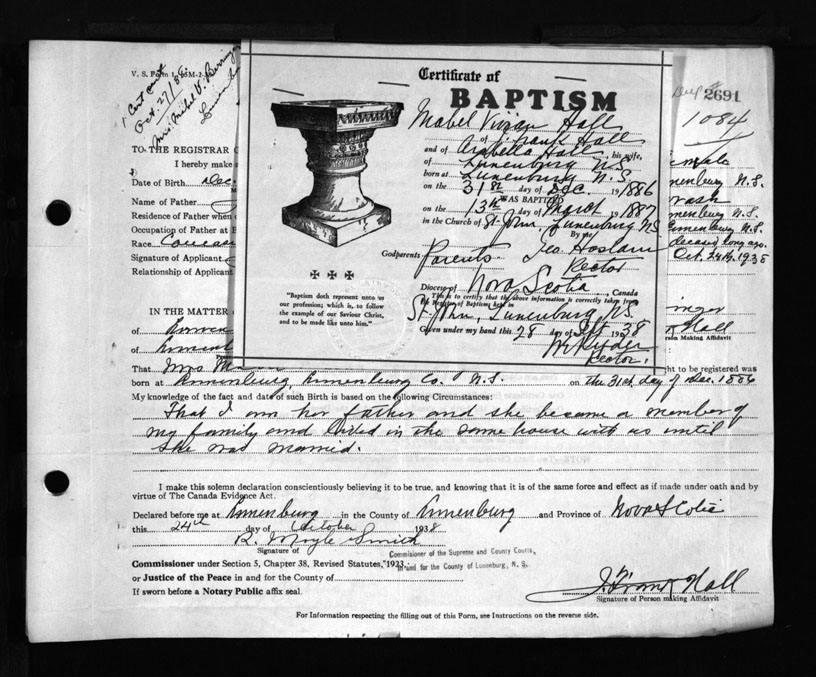 V. S. Form
1 Cert sent
Oct. 27/38
Mrs. Mabel V.
TO THE REGISTRAR
I hereby make
Date of Birth Dec
Name of Father
Residence of Father when
Occupation of Father at B
Race
Signature of Applicant
Relationship of Applicant
IN THE MATTER
of
of
Certificate of
BAPTISM
Mabel Vivian Hall
of J. Frank Hall
and of Arabella Hall, his wife,
of Lunenburg N.S.
born at Lunenburg N.S.
on the 31st day of Dec. 1886
WAS BAPTIZED
on the 13th day of March 1887
in the Church of St. John, Lunenburg NS
By me
Godparents Parents. Geo Haslam
Rector
Diocese of Nova Scotia, Canada
This is to certify that the above information is correctly taken from
the Register of Baptisms kept in
St. John, Lunenburg, N.S.
Given under my hand this 28 day of Sept 1938
Rector.
"Baptism doth represent unto us
our profession; which is, to follow
the example of our Saviour Christ,
and to be made like unto him."
2691
1084
N.S.
N.S.
N.S.
deceased long ago.
Oct. 24th, 1938
Hall
Person Making Affidavit
That Mrs M
ht to be registered was
born at Lunenburg, Lunenburg Co. N.S. on the 31st day of Dec. 1886
My knowledge of the fact and date of such Birth is based on the following Circumstances:
That I am her father and she became a member of
my family and lived in the same house with us until
she was married.
I make this solemn declaration conscientiously believing it to be true, and knowing that it is of the same force and effect as if made under oath and by
virtue of The Canada Evidence Act.
Declared before me at Lunenburg in the County of Lunenburg and Province of Nova Scotia
this 24th day of October 1938
R. Moyle Smith
Signature of
Commissioner of the Supreme and County Courts,
Commissioner under Section 5, Chapter 38, Revised Statutes, "1923,"
in and for the County of Lunenburg, N. S.
or Justice of the Peace in and for the County of
If sworn before a Notary Public affix seal.
J. Frank Hall
Signature of Person making Affidavit
For Information respecting the filling out of this Form, see Instructions on the reverse side.